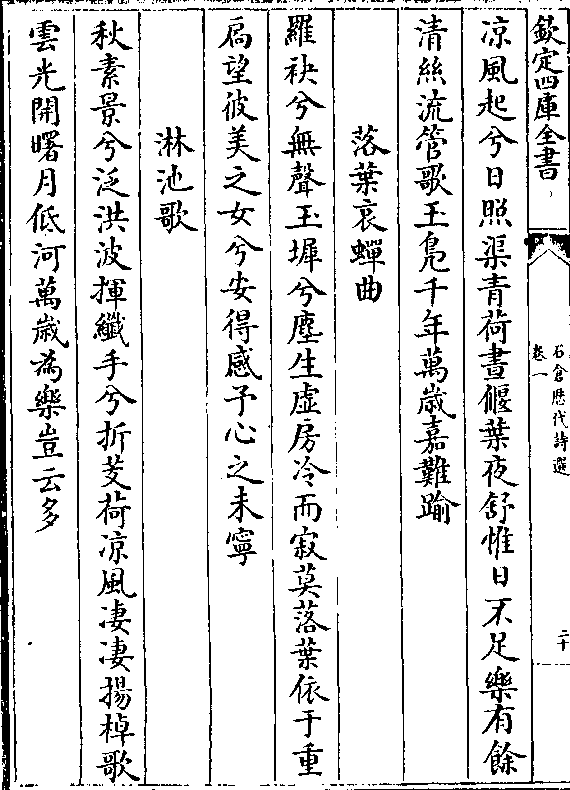 欽定四庫全書
石倉歷代詩選
卷一
二十
凉風起兮日照渠青荷晝偃葉夜舒惟日不足樂有餘
清絲流管歌玉鳧千年萬歲嘉難踰
落葉哀蟬曲
羅袂兮無聲玉墀兮塵生虛房冷而寂莫落葉依于重
扄望彼美之女兮安得感予心之未寧
淋池歌
秋素景兮泛洪波揮纖手兮折芰荷凉風凄凄揚棹歌
雲光開曙月低河萬歲為樂豈云多